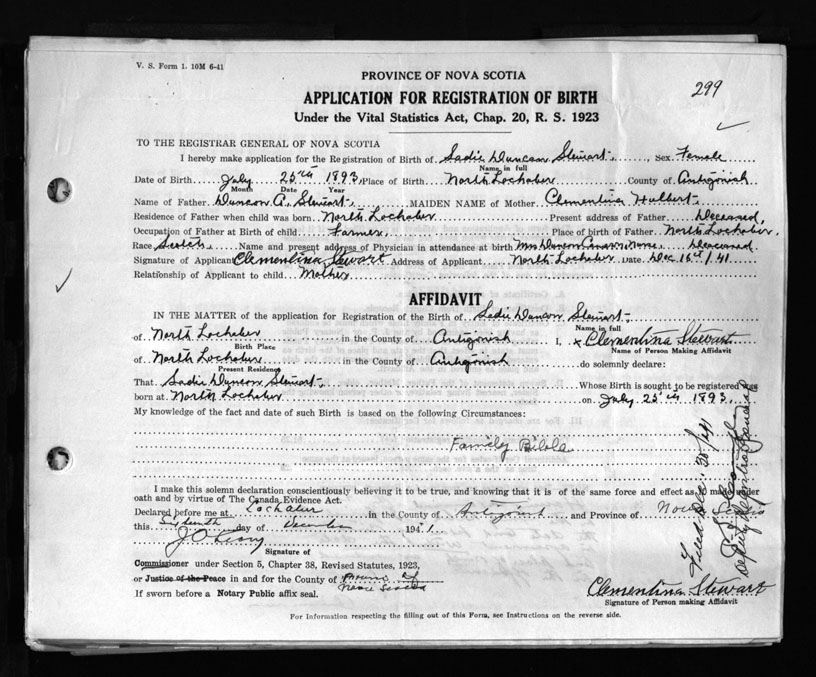 V. S. Form 1. 10M 6-41
299
PROVINCE OF NOVA SCOTIA
APPLICATION FOR REGISTRATION OF BIRTH
Under the Vital Statistics Act, Chap. 20, R. S. 1923
TO THE REGISTRAR GENERAL OF NOVA SCOTIA
I hereby make application for the Registration of Birth of Sadie Duncan Stewart, Sex Female
Name in full
Date of Birth July 25th 1893, Place of Birth North Lochaber County of Antigonish
Month Date Year
Name of Father Duncan A. Stewart MAIDEN NAME of Mother Clementina Hulbert
Residence of Father when child was born North Lochaber Present address of Father Deceased,
Occupation of Father at Birth of child Farmer, Place of birth of Father North Lochaber.
Race Scotch, Name and present address of Physician in attendance at birth Mrs Duncan Nurse, Deceased
Signature of Applicant Clementina Stewart Address of Applicant North Lochaber Date Dec 16th/41
Relationship of Applicant to child Mother
AFFIDAVIT
IN THE MATTER of the application for Registration of the Birth of Sadie Duncan Stewart
Name in full
of North Lochaber in the County of Antigonish I, x Clementina Stewart
Birth Place Name of Person Making Affidavit
of North Lochaber in the County of Antigonish do solemnly declare:
Present Residence
That Sadie Duncan Stewart Whose Birth is sought to be registered was
born at North Lochaber on July 25th 1893.
My knowledge of the fact and date of such Birth is based on the following Circumstances:
Family Bible
I make this solemn declaration conscientiously believing it to be true, and knowing that it is of the same force and effect as if made under
oath and by virtue of The Canada Evidence Act.
Declared before me at Lochaber in the County of Antigonish and Province of Nova
this Sixteenth day of December 1941.
Signature of
Commissioner under Section 5, Chapter 38, Revised Statutes, 1923,
or Justice of the Peace in and for the County of Province of
Nova Scotia
If sworn before a Notary Public affix seal.
Clementina Stewart
Signature of Person making Affidavit
Filed Dec. 30/41
Deputy Registrar General
For Information respecting the filling out of this Form, see Instructions on the reverse side.